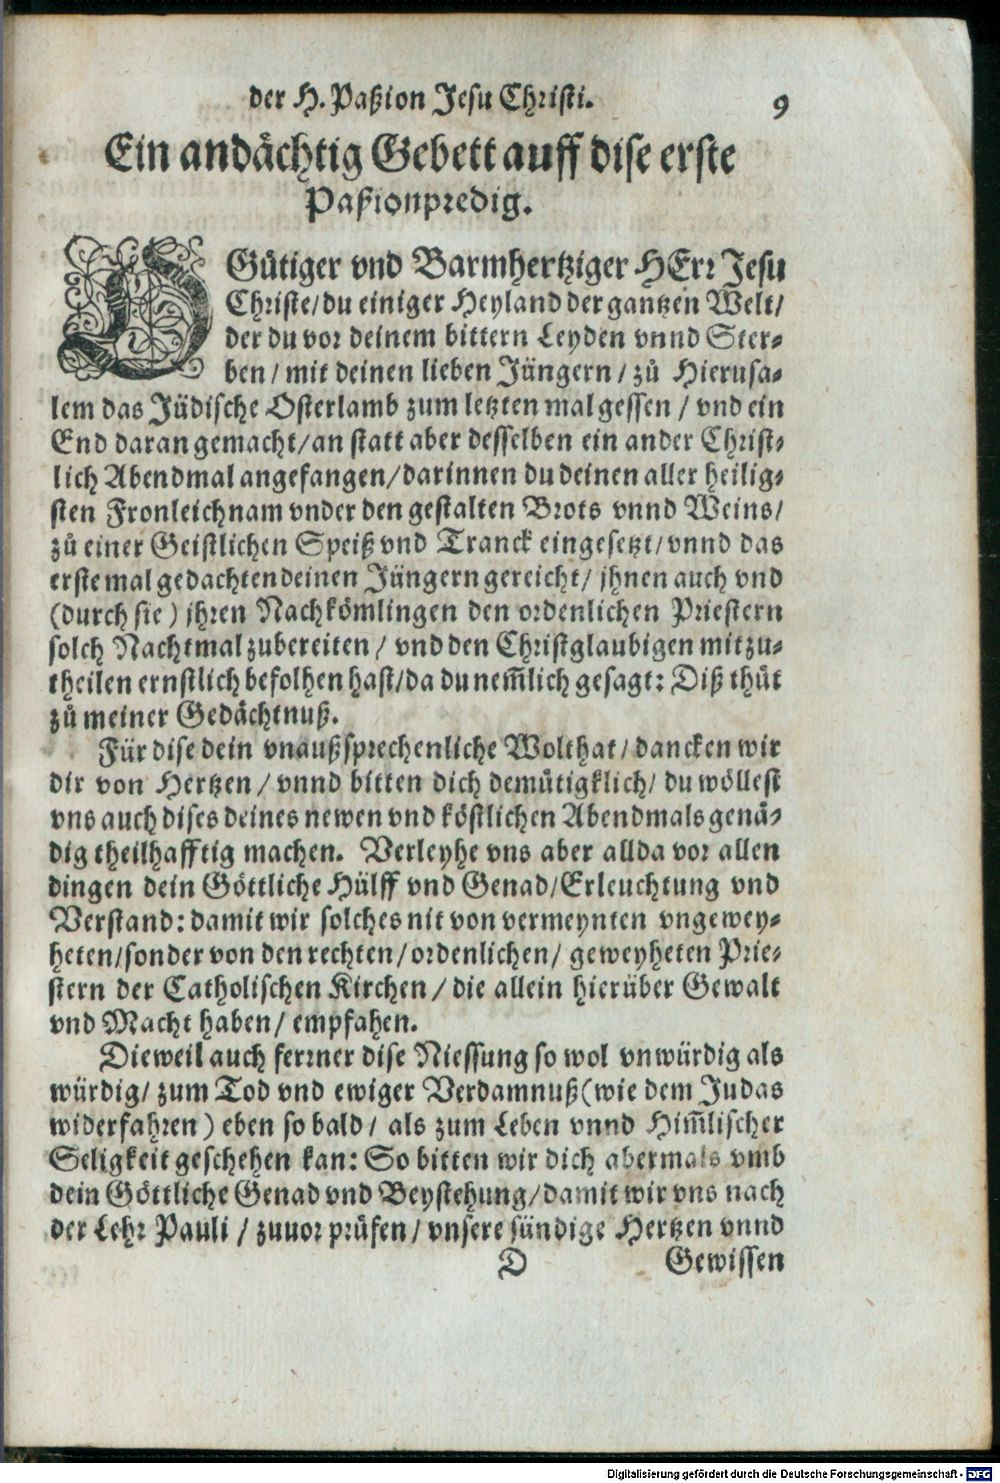 der H. Paßion Jesu Christi. 9
Ein andächtig Gebett auff dise erste
Paßionpredig.
O Gütiger vnd Barmhertziger HErr Jesu
Christe/du einiger Heyland der gantzen Welt/
der du vor deinem bittern Leyden vnnd Ster-
ben / mit deinen lieben Jüngern / zů Hierusa-
lem das Jüdische Osterlamb zum letzten mal gessen / vnd ein
End daran gemacht/an statt aber desselben ein ander Christ-
lich Abendmal angefangen/darinnen du deinen aller heilig-
sten Fronleichnam vnder den gestalten Brots vnnd Weins/
zů einer Geistlichen Speiß vnd Tranck eingesetzt/vnnd das
erste mal gedachten deinen Jüngern gereicht/ jhnen auch vnd
(durch sie) jhren Nachkömlingen den ordenlichen Priestern
solch Nachtmal zubereiten / vnd den Christglaubigen mitzu-
theilen ernstlich befolhen hast/da du nem̃lich gesagt: Diß thůt
zů meiner Gedächtnuß.
Für dise dein vnaußsprechenliche Wolthat/dancken wir
dir von Hertzen / vnnd bitten dich demütigklich/ du wöllest
vns auch dises deines newen vnd köstlichen Abendmals genä-
dig theilhafftig machen. Verleyhe vns aber allda vor allen
dingen dein Göttliche Hülff vnd Genad/Erleuchtung vnd
Verstand: damit wir solches nit von vermeynten vngewey-
heten/sonder von den rechten/ordenlichen/ geweyheten Prie-
stern der Catholischen Kirchen / die allein hierüber Gewalt
vnd Macht haben/ empfahen.
Dieweil auch ferrner dise Niessung so wol vnwürdig als
würdig/ zum Tod vnd ewiger Verdamnuß(wie dem Judas
widerfahren) eben so bald / als zum Leben vnnd Him̃lischer
Seligkeit geschehen kan: So bitten wir dich abermals vmb
dein Göttliche Genad vnd Beystehung/damit wir vns nach
der Lehr Pauli / zuuor prüfen/ vnsere sündige Hertzen vnnd
D Gewissen
Digitalisierung gefördert durch die Deutsche Forschungsgemeinschaft - DFG